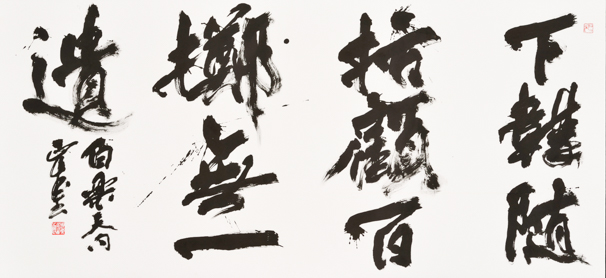 下韝隨
指顧百
擲無一
遺
白樂天句